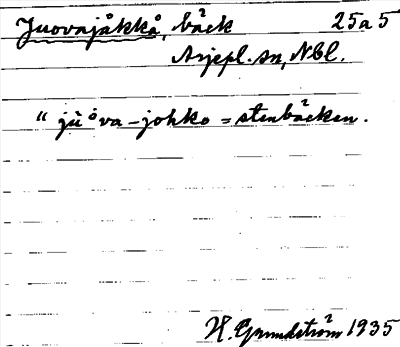 Juovajåkkå, bäck 25a5
Arjepl. sn, Nbl.
"jùåva-johko = stenbäcken.
H. Grundström 1935